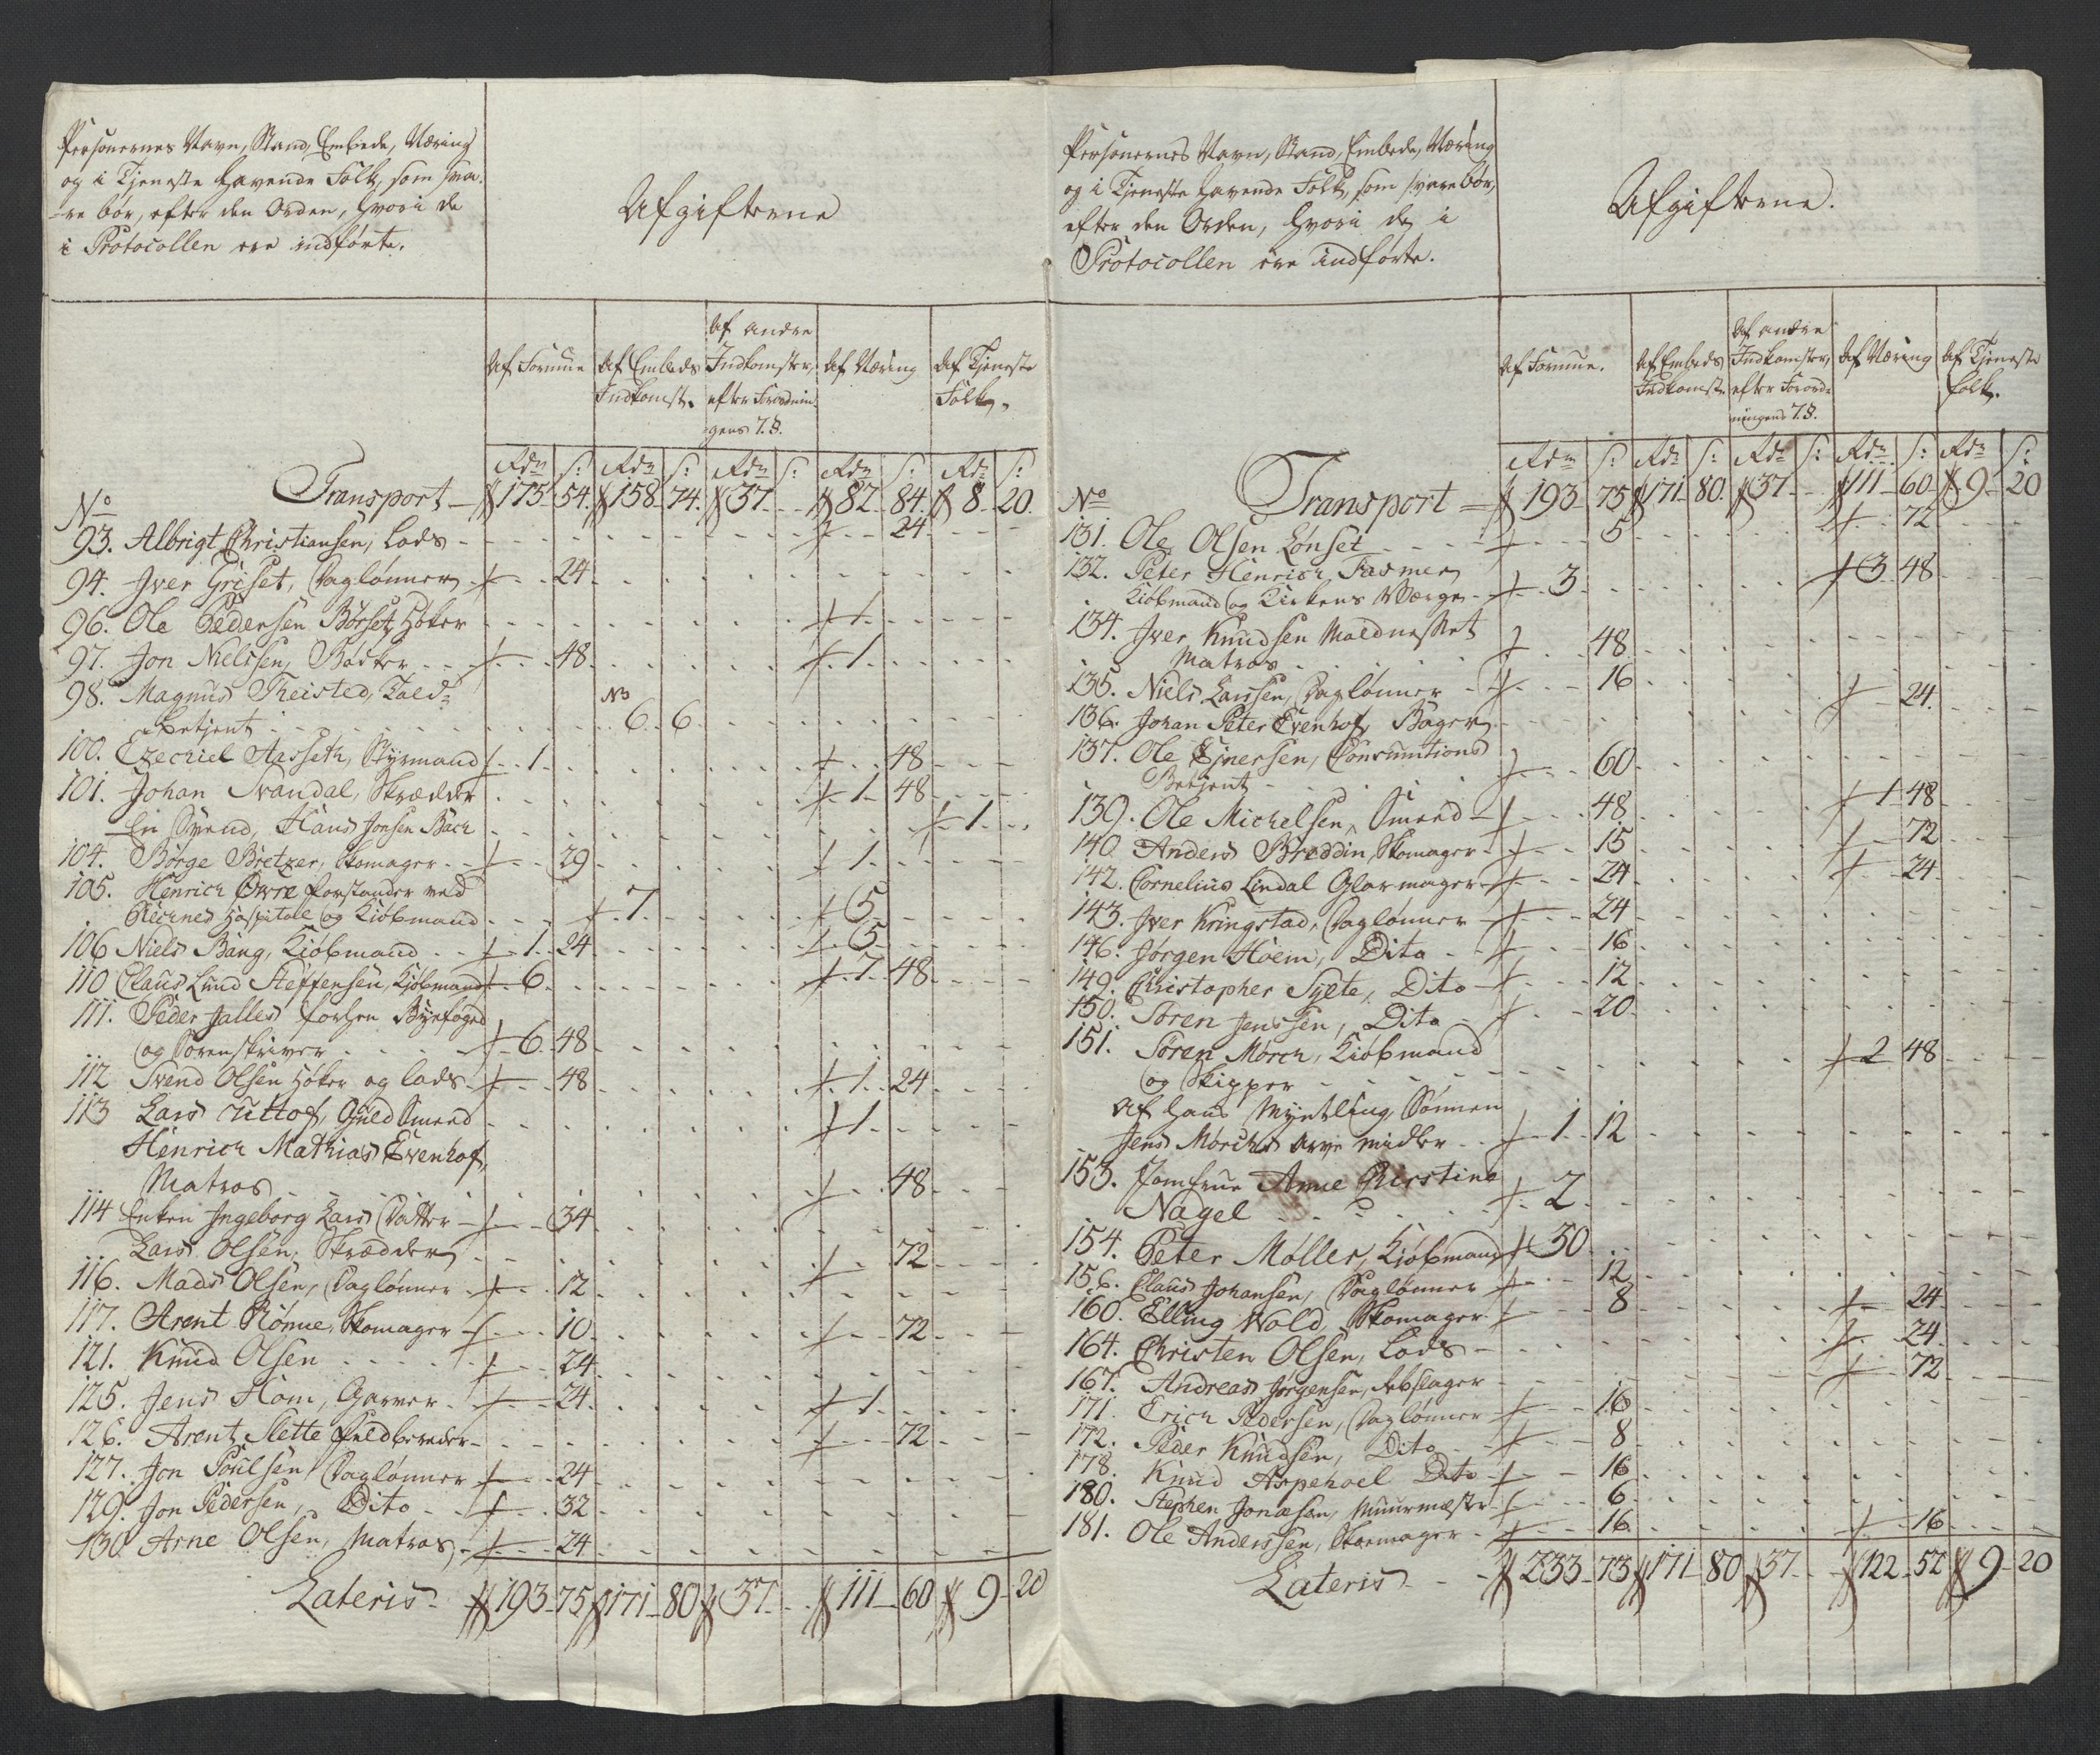 Personernes Navn, Stand, Embede, Næring
og i Tjeneste havende Folk, som sva-
re bør, efter den Orden, hvori de
i Protocollen ere indførte.
Afgifterne
Af Formue
Af Embeds Indkomst.
Af andre Indkomster, efter Forordnin-
gens 7. §.
Af Næring
Af Tjeneste Folk.
Rdr s: Rdr s: Rdr s: Rdr s: Rdr s:
No Transport 175 54. 158 74. 37 82 84. 8 20.
93. Albrigt Christiansen, Lods 24
94. Iver Griset, Daglønner 24
96. Ole Pedersen Børset, Høker 1
97. Jon Nielssen, Bødker 48. 1
98. Magnus Theisted, Told-
betjent No 6. 6
100. Ezechiel Aasseth, Styrmand 1 48
101. Johan Svandal, Skrædder 1 48
En Svend, Hans Jonsen Bach 1
104. Børge Bretzer, Skomager 29 1
105. Henrich Owre forstander ved
Reknes Hospitale og Kiøbmand 7 5
106 Niels Bang, Kiøbmand 1 24 5
110 Claus Lund Steffensen, Kjøbmand 6 7 48
111. Peder Jalles forhen Byefoged
og Sorenskriver 6 48
112 Svend Olsen Høker og Lods 48 1 24
113 Lars Uttof, Guld Smed 1
Henrich Mathias Evenhof,
Matros 48
114 Enken Ingeborg Lars Datter 34
Lars Olsen, Skrædder 72
116. Mads Olsen, Daglønner 12
117. Arent Rønne, Skomager 10 72
121. Knud Olsen 24
125. Jens Hom, Garver 24 1
126. Arent Slette Feldbereder 72
127. Jon Poulsen, Daglønner 24
129. Jon Pedersen, Dito 32
130 Arne Olsen, Matros 24
Lateris 193 75 171 80 37 111 60 9 20
Personernes Navn, Stand, Embede, Næring
og i Tjeneste havende Folk, som svare bør,
efter den Orden, hvori de i
Protocollen ere indførte.
Afgifterne.
Af Formue.
Af Embeds Indkomst
Af andre Indkomster, efter Forord-
ningens 7. §.
Af Næring
Af Tjeneste folk.
Rdr s: Rdr s: Rdr s: Rdr s: Rdr s:
No Transport 193 75 171 80 37 111 60 9 20
131. Ole Olsen Lønset 5 72
132. Peter Henrich Fasmer
Kiøbmand og Kirkens Værge 3 3 48
134. Iver Knudsen Moldnesset
Matros 48
135. Niels Larssen, Daglønner 16
136. Johan Peter Evenhof, Bager 24
137. Ole Ejnersen, Consumtions
Betjent 60
139. Ole Michelsen, Smed 48 1 48
140 Anders Breddin, Skomager 15 72
142. Cornelius Lindal Glarmager 24 24
143. Iver Kringstad, Daglønner 24
146. Jørgen Hoem, Dito 16
149. Christopher Sylte, Dito 12
150. Søren Jenssen, Dito 20
151. Søren Mørch, Kiøbmand
og Skipper 2 48
Af hans Myndling Sønnen
Jens Mørchs Arve midler 1 12
153. Jomfrue Anne Kirstine
Nagel 2
154. Peter Møller, Kiøbmand 30
156. Claus Johansen, Daglønner 12
160. Elling Wold, Skomager 8 24
164. Christen Olsen, Lods 24
167. Andreas Jørgensen, Rebslager 72
171. Erich Pedersen, Daglønner 16
172. Peder Knudsen, Dito 8
178. Knud Aspehoel Dito 16
180. Stephen Jonæsen, Muurmæster 6
181. Ole Anderssen, Skomager 16 16
Lateris 233 73 171 80 37 122 52 9 20